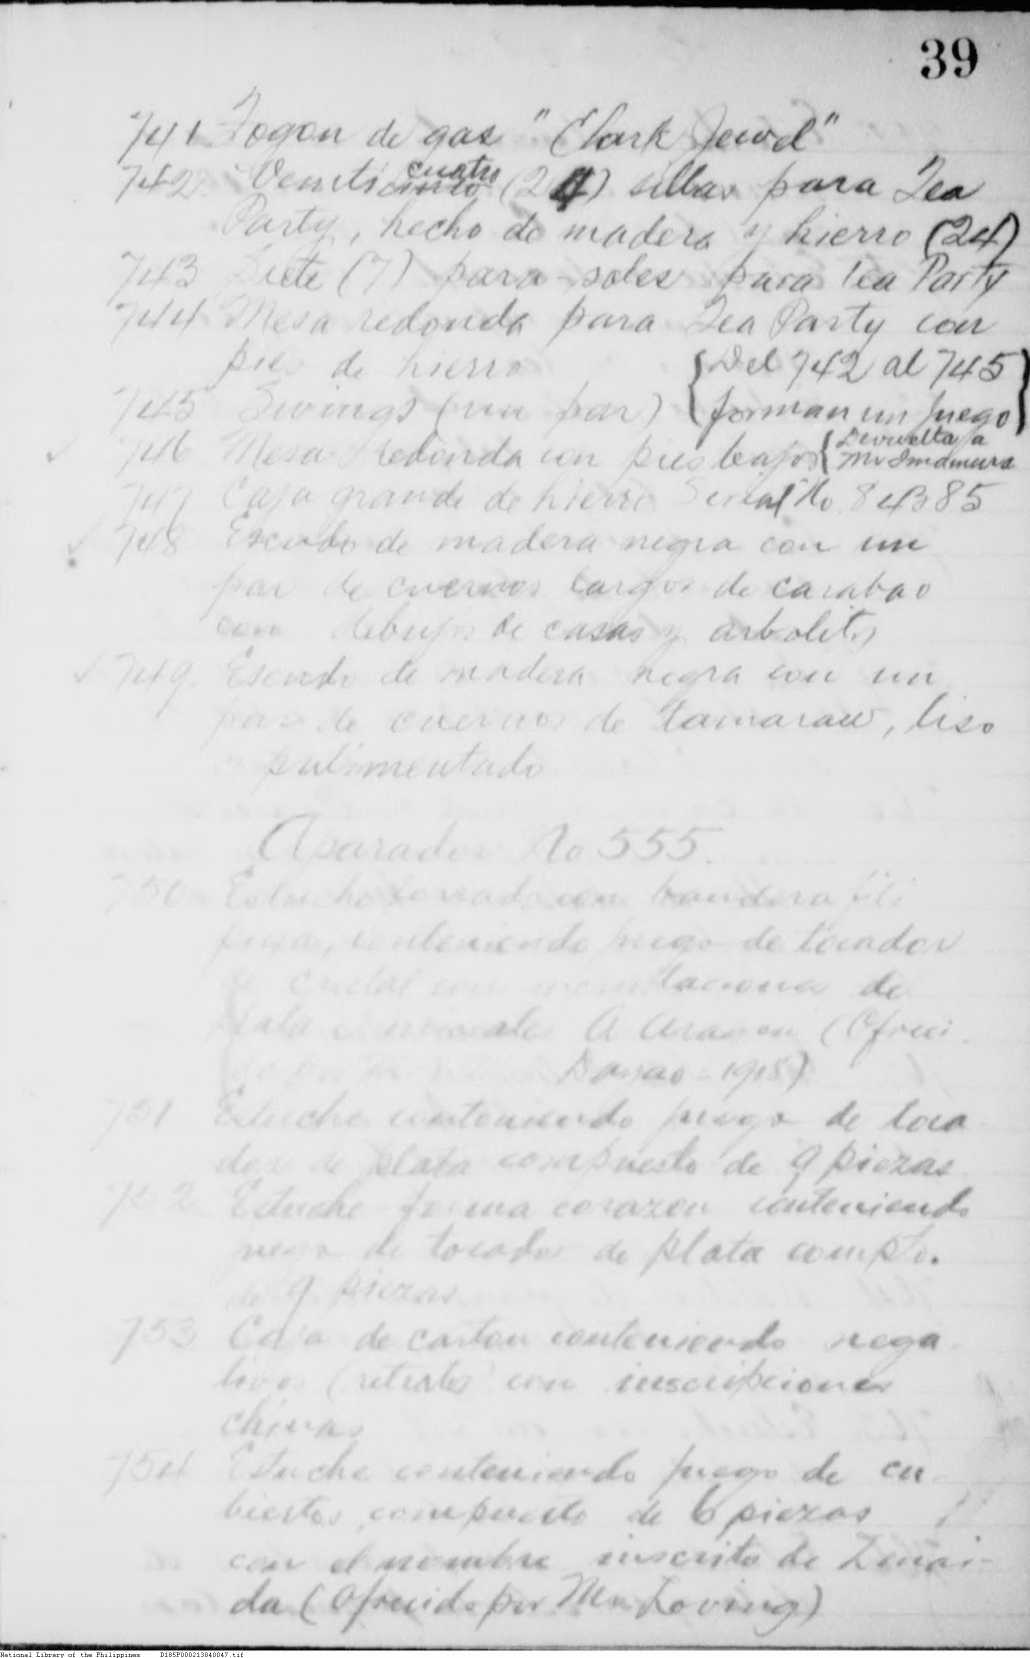 39
741 Fogon de gas "Clark Jewel"
742 Venticuatro (24) sillas para Tea
Party, hecho de madera y hierro (24)
743 Siete (7) para-soles para Tea Party
744 Mesa redonda para Tea Party con
pies de hierro {Del 742 al 745
745 Swings (un par) forman un juego}
746 Mesa redonda con pies bajos {Devuelta a
Mr
747 Caja grande de hierro Serial No. 84385
748 Escudo de madera negra con un
par de cuernos largos de carabao
con debujos de casas y arbolitos
749. Escudo de madera negra con un
par de cuernos de tamaraw, liso
pulimentado
Aparador No 555.
750 Estuche forrado con bandera fili
pina, conteniendo juego de tocador
de cristal con incrustaciones de
plata (Ofreci
Danao - 1918)
751 Estuche conteniendo juego de toca
dor de plata compuesto de 9 piezas
752 Estuche forma corazon conteniendo
juego de tocador de plata compto.
de 9 piezas
753 Caja de carton conteniendo nega
tivos (retratos) con inscripciones
chinas
754 Estuche conteniendo juego de cu-
biertos, compuesto de 6 piezas
con el nombre inscrito de Zenai-
da (Ofrecido por Mr. Loving)
National Library of the Philippines D185P000213040047.tif